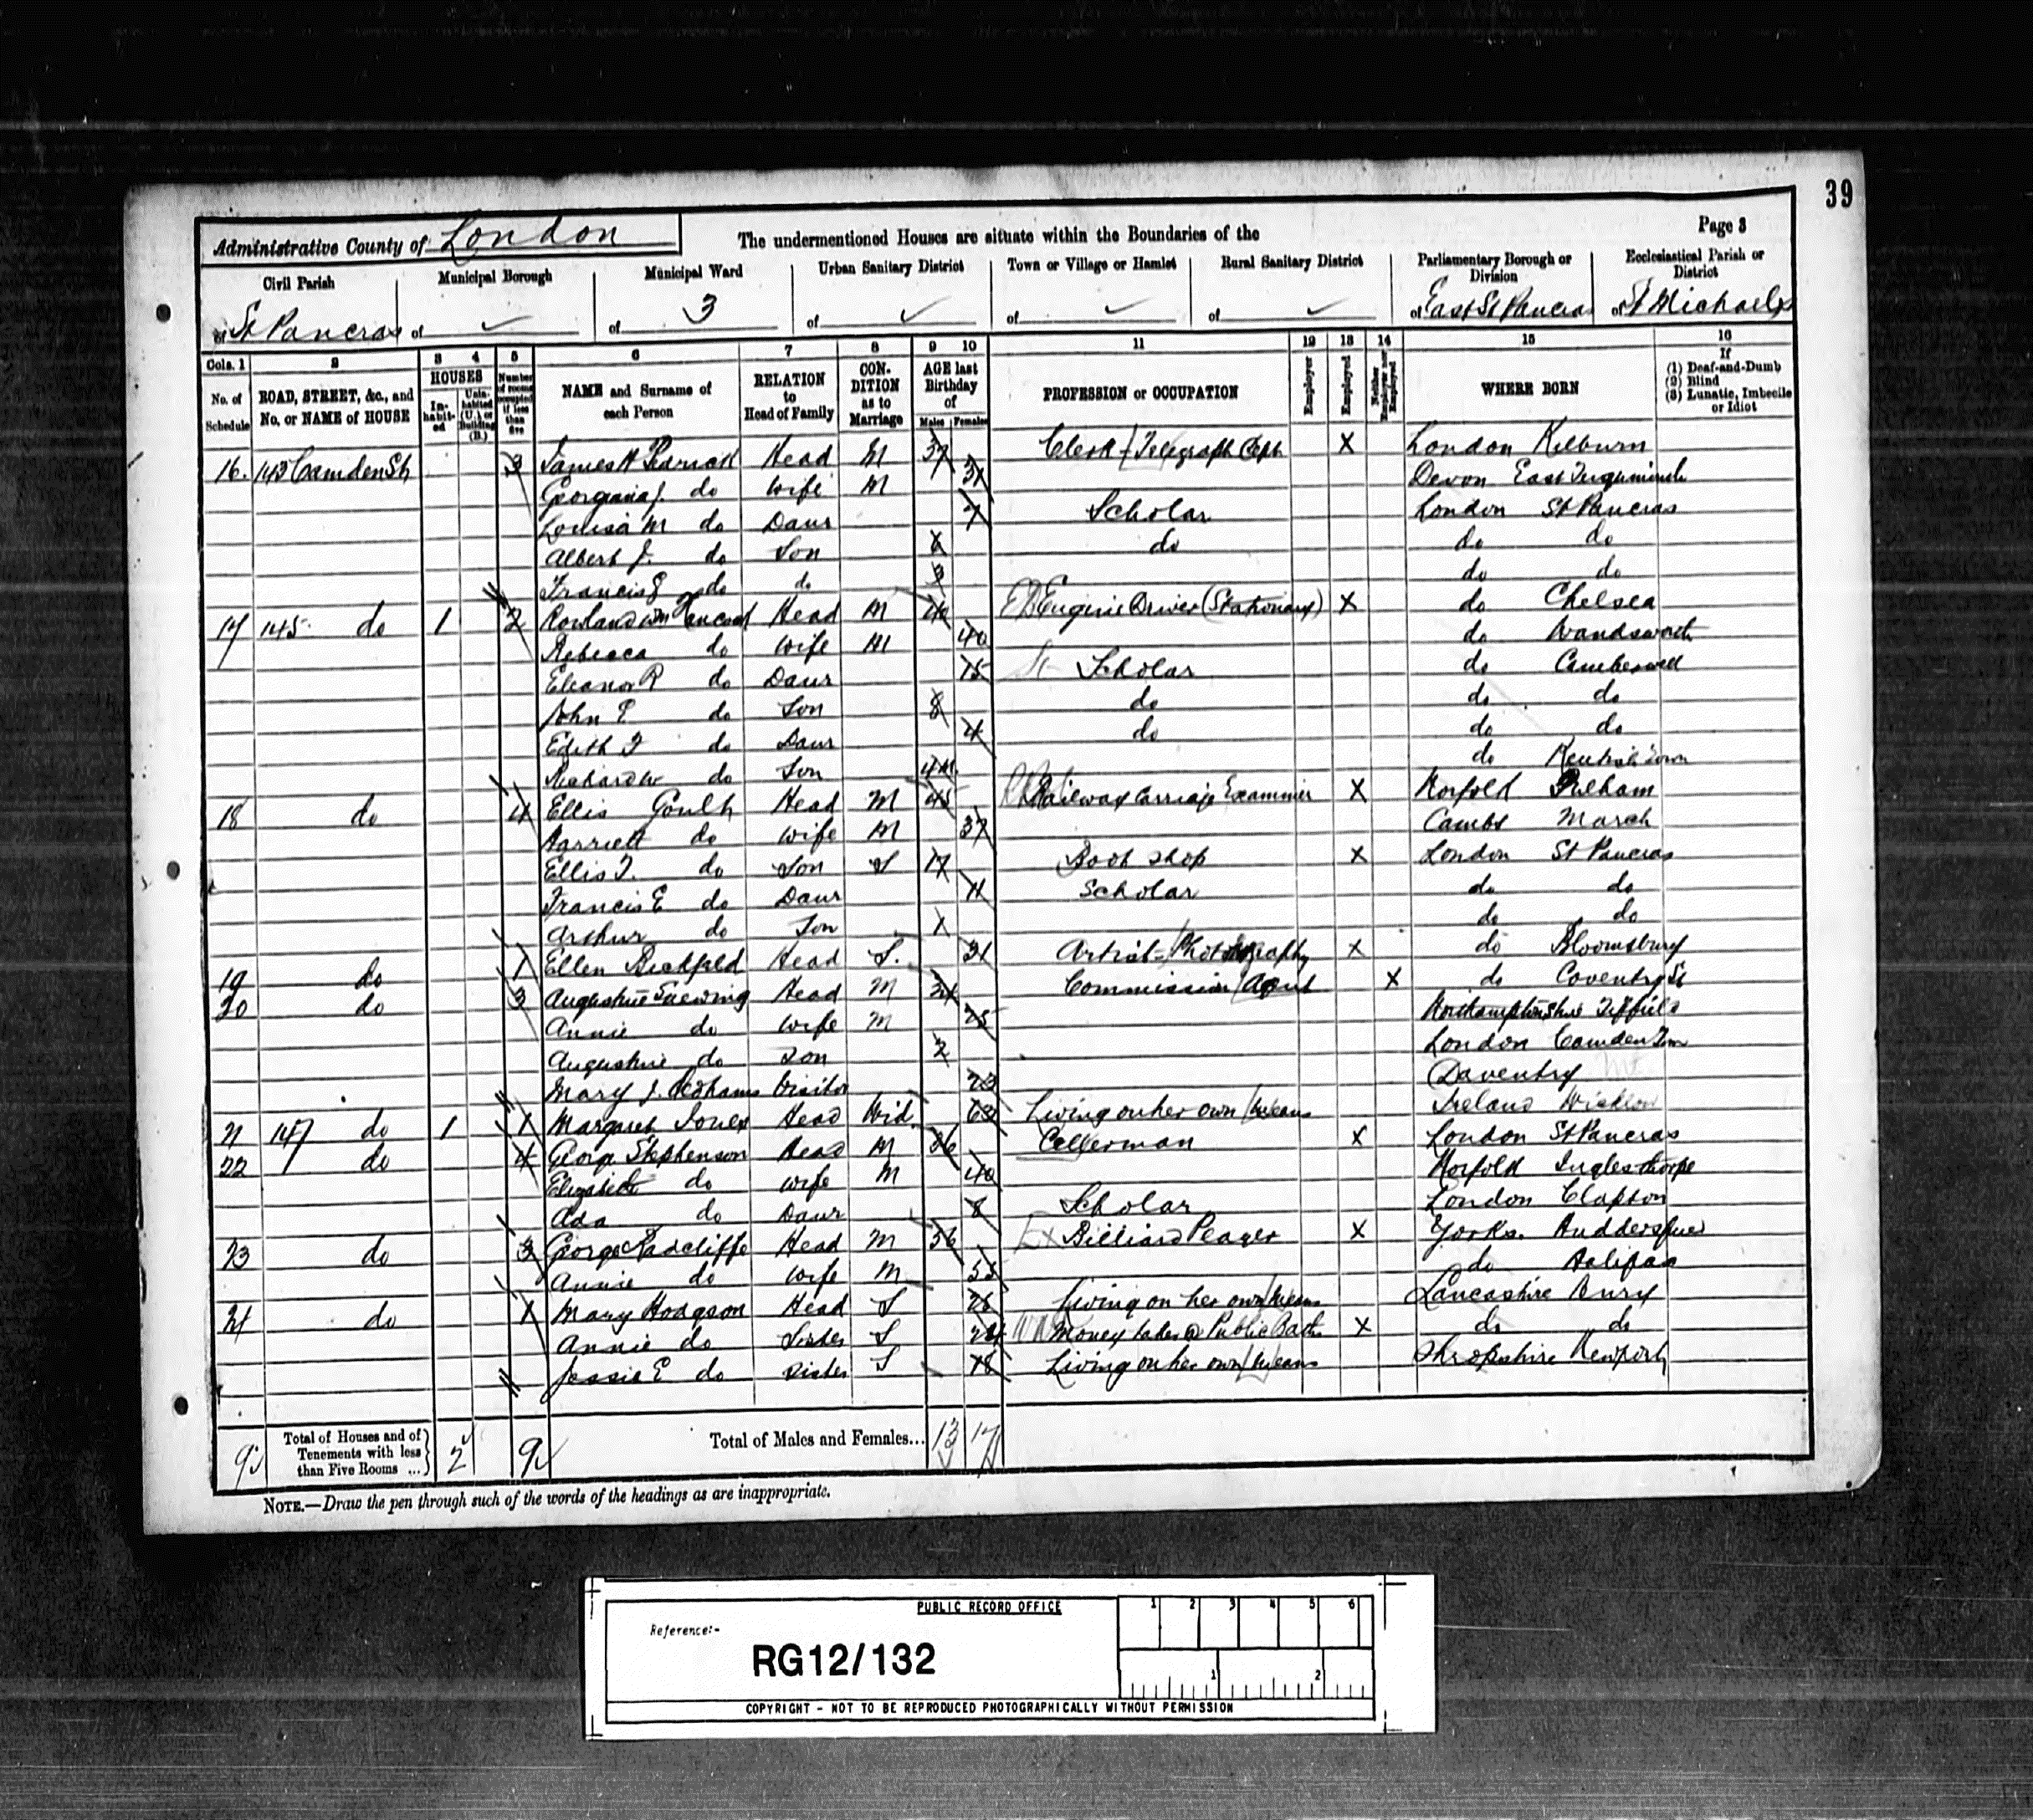 39
Page 3
Administrative County of London
The undermentioned Houses are situate within the Boundaries of the
Civil Parish
Municipal Borough
Municipal Ward
Urban Sanitary District
Town or Village or Hamlet
Rural Sanitary District
Parliamentary Borough or Division
Ecclesiastical Parish or District
of St Pancras of of 3 of of of of East St Pancras of St Michaels
Cols. 1 2 3 4 5 6 7 8 9 10 11 12 13 14 15 16
No. of Schedule
ROAD, STREET, &c., and No. or NAME of HOUSE
HOUSES
Inhabited
Uninhabited (U.) or Building (B.)
Number of rooms occupied if less than five
NAME and Surname of each Person
RELATION to Head of Family
CONDITION as to Marriage
AGE last Birthday of
Males Females
PROFESSION or OCCUPATION
Employer
Employed
Neither Employer nor Employed
WHERE BORN
If (1) Deaf-and-Dumb (2) Blind (3) Lunatic, Imbecile or Idiot
16. 143 Camden St 3 James H Head M 37 Clerk Telegraph X London Kilburn
Georgina J. do Wife M 31 Devon East
Louisa M do Daur 7 Scholar London St Pancras
Albert J. do Son do do do
Francis do do 3 do do
17 145 do 1 2 Rowland Wm Head M Engine Driver (Stationary) X do Chelsea
Rebecca do Wife M 40 do Wandsworth
Eleanor R do Daur 15 Scholar do Camberwell
John do Son 8 do do do
Edith do Daur 4 do do do
Richard W do Son 4M do Kentish Town
18 do 4 Ellis Head M 45 Railway Carriage Examiner X Norfolk Pulham
Harriett do Wife M 37 Cambs March
Ellis do Son S 17 Boot Shop X London St Pancras
Francis E do Daur 11 Scholar do do
Arthur do Son 1 do do
19 do 1 Ellen Head S. 31 Artist - Photography X do Bloomsbury
20 do 3 Augustine Head M Commission Agent X do Coventry St
Annie do Wife M 25 Northamptonshire Tiffield
Augustine do Son 2 London Camden Twn
Mary J. Visitor 23 Daventry
21 147 do 1 1 Margaret Jones Head Wid. 63 Living on her own Means Ireland Wicklow
22 do 4 George Stephenson Head M 36 Cellerman X London St Pancras
Elizabeth do Wife M 40 Norfolk Inglesthorpe
Ada do Daur 8 Scholar London Clapton
23 do 3 George Radcliffe Head M 56 Billiard Player X Yorks. Huddersfield
Annie do Wife M do Halifax
24 do 1 Mary Hodgson Head S 26 Living on her own Means Lancashire Bury
Annie do Sister S Money taker @ Public Bath X do do
Jessie E do Sister S 18 Living on her own Means Shropshire Newport
9 Total of Houses and of Tenements with less than Five Rooms ... 2 9 Total of Males and Females... 13 17
NOTE.—Draw the pen through such of the words of the headings as are inappropriate.
PUBLIC RECORD OFFICE
1 2 3 4 5 6
Reference:-
RG12/132
1 2
COPYRIGHT - NOT TO BE REPRODUCED PHOTOGRAPHICALLY WITHOUT PERMISSION